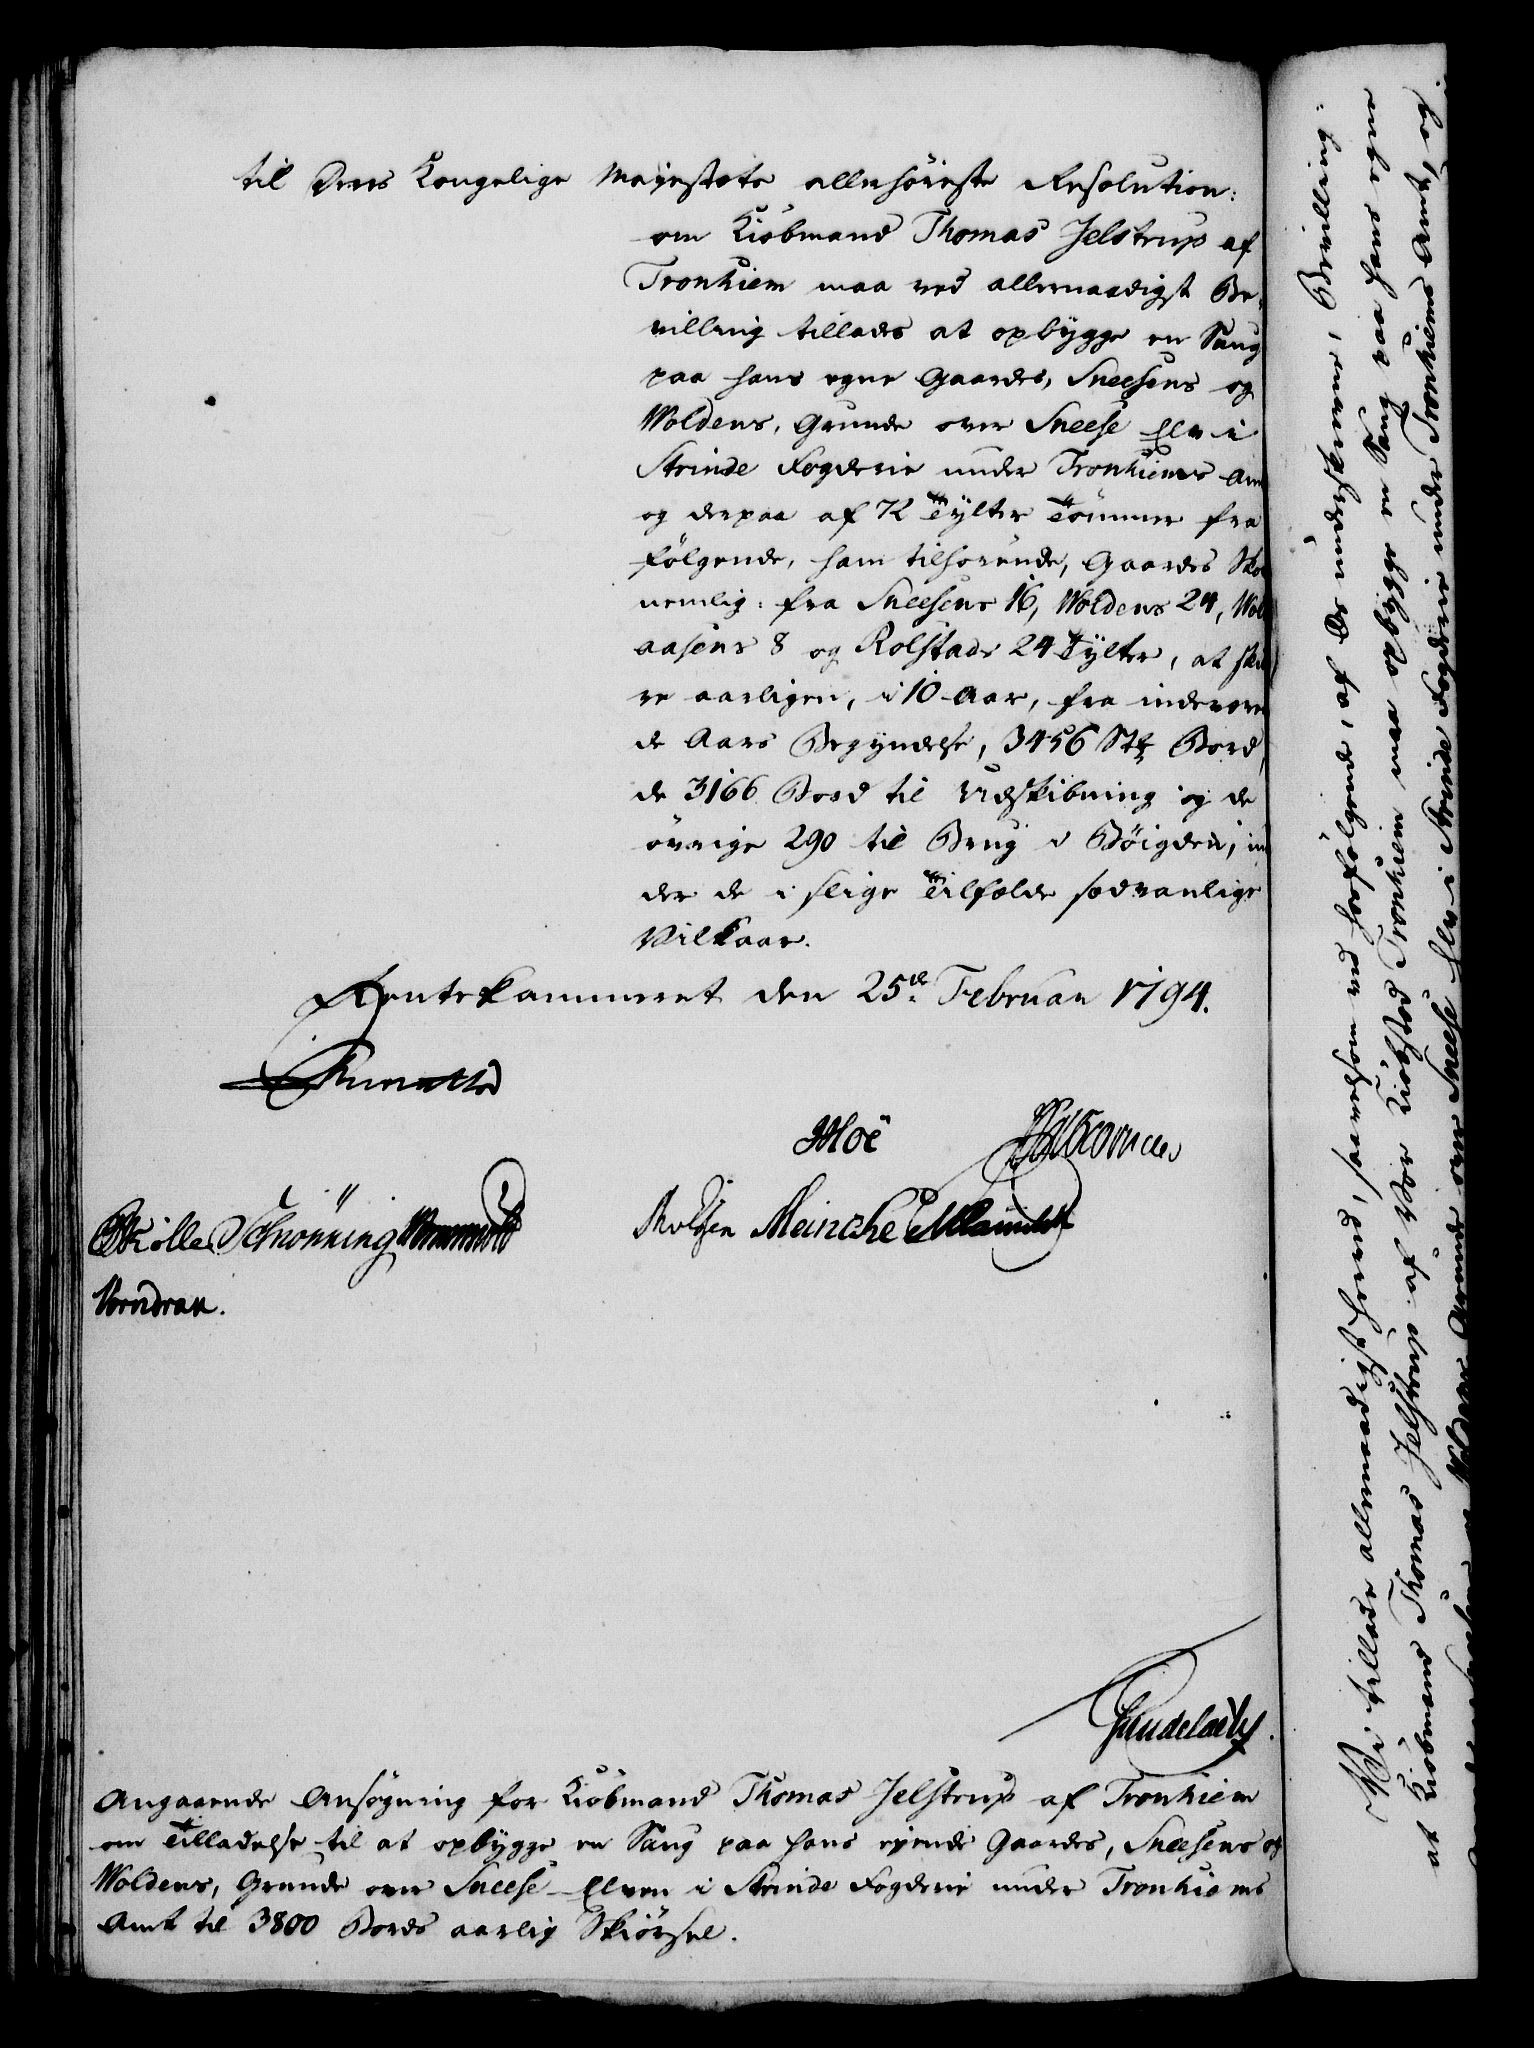 til Deres Kongelige Mayestæts allerhöieste Resolution:
om Kiöbmand Thomas Jelstrup af
Tronhiem maa ved allernaadigst Be-
villing tillades at opbygge en Saug
paa hans egne Gaardes, Sneesens og
Woldens, Grunde over Sneese Elv i
Strinde Fogderie under Tronhiems Am
og derpaa af 72 Tylter Tömmer fra
fölgende, ham tilhörende, Gaardes Sko
nemlig: fra Sneesens 16, Woldens 24, Wol
aasens 8 og Rolstads 24 Tylter, at skiæ
re aarligen, i 10 Aar, fra indeværen
de Aars Begyndelse, 3456 Stk Bord,
de 3166 Bord til Udskibning og de
övrige 290 til Brug i Böigden, un
der de i slige Tilfælde sædvanlige
Vilkaar.
Rentekammeret den 25de Februar 1794.
Moe
Skilles Schrönning
Rolfsen Meincke
Vorndran.
Angaaende Ansögning for Kiöbmand Thomas Jelstrup af Tronhiem
om Tilladelse til at opbygge en Saug paa hans eyende Gaardes, Sneesens og
Woldens, Grunde over Sneese-Elven i Strinde Fogderie under Tronhiems
Amt til 3800 Bords aarlig Skiörsel.
Vi tillade allernaadigst herved, saavelsom ved hosfölgende, af Os underskrevne, Bevilling:
at Kiöbmand Thomas Jelstrup af Vor Kiöbstæd Tronhiem maa opbygge en Saug paa hans egne
Gaardes, Sneesens og Woldens Grunde over Sneese Elv i Strinde Fogderie under Tronhiems Amt, og